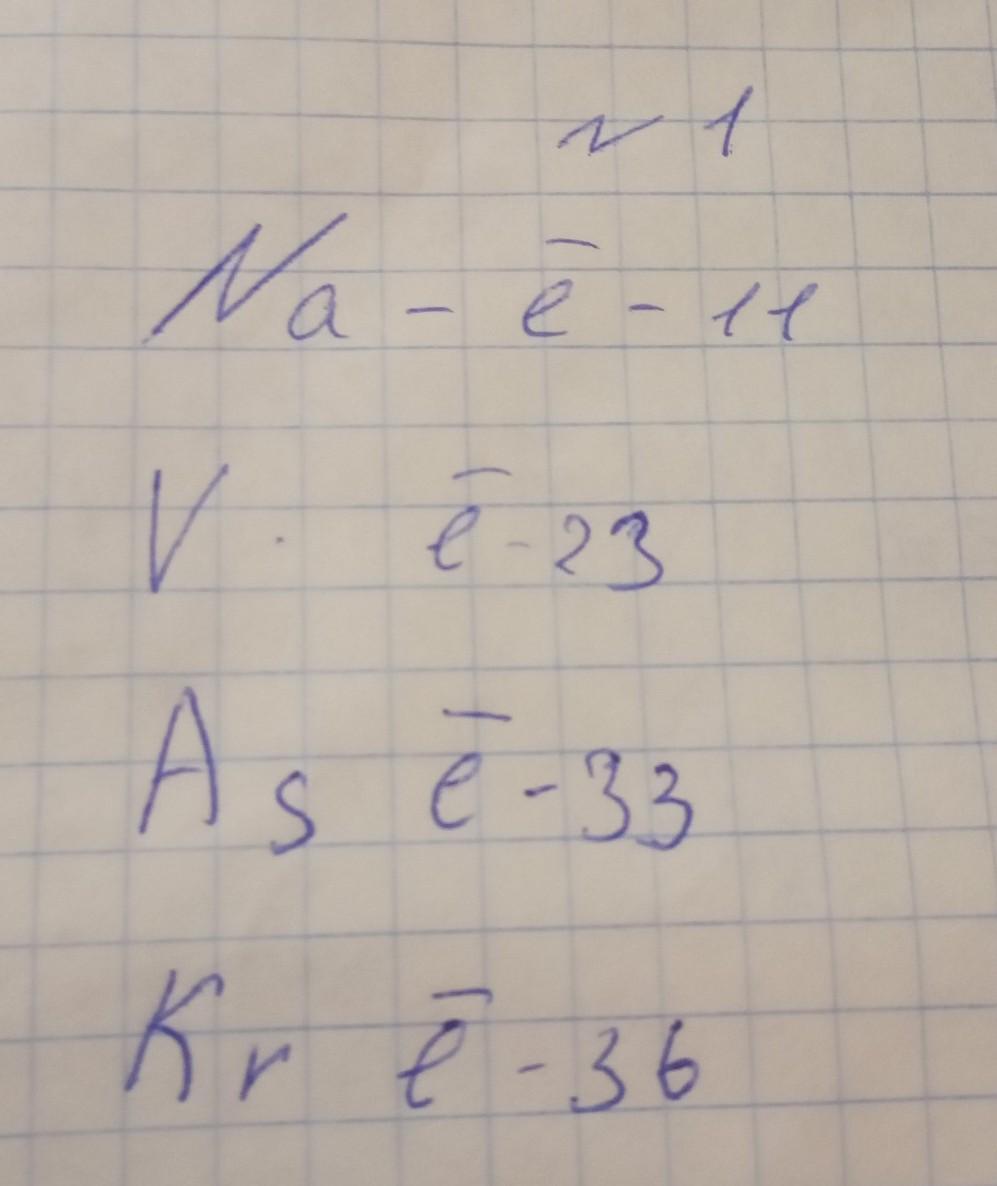 № 1
Na - ē - 11
V . ē - 23
As ē - 33
Kr ē - 36